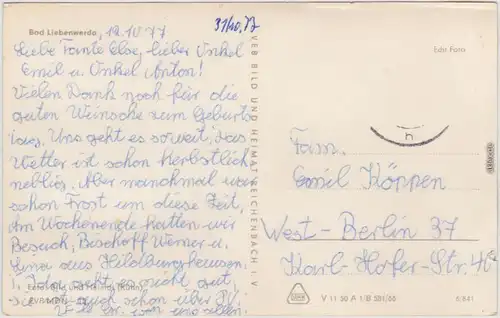 Bad Liebenwerda, 12.10.77
31/10.77
Liebe Tante Else, lieber Onkel
Emil u. Onkel Anton!
Vielen Dank noch für die
guten Wünsche zum Geburts-
tag. Uns geht es soweit, das
Wetter ist schon herbstlich
neblig. Aber manchmal war
schon Frost um diese Zeit.
Am Wochenende hatten wir
Besuch, Bischoff Werner u.
Lina aus Hildburghausen.
geht es nicht gut,
sie ist auch schon über
VEB BILD UND HEIMAT REICHENBACH i. V.
Echt Foto
h
Fam.
Emil Köppen
West-Berlin 37
Karl-Hofer-Str.
V 11 50 A 1/B 581/66
6 841